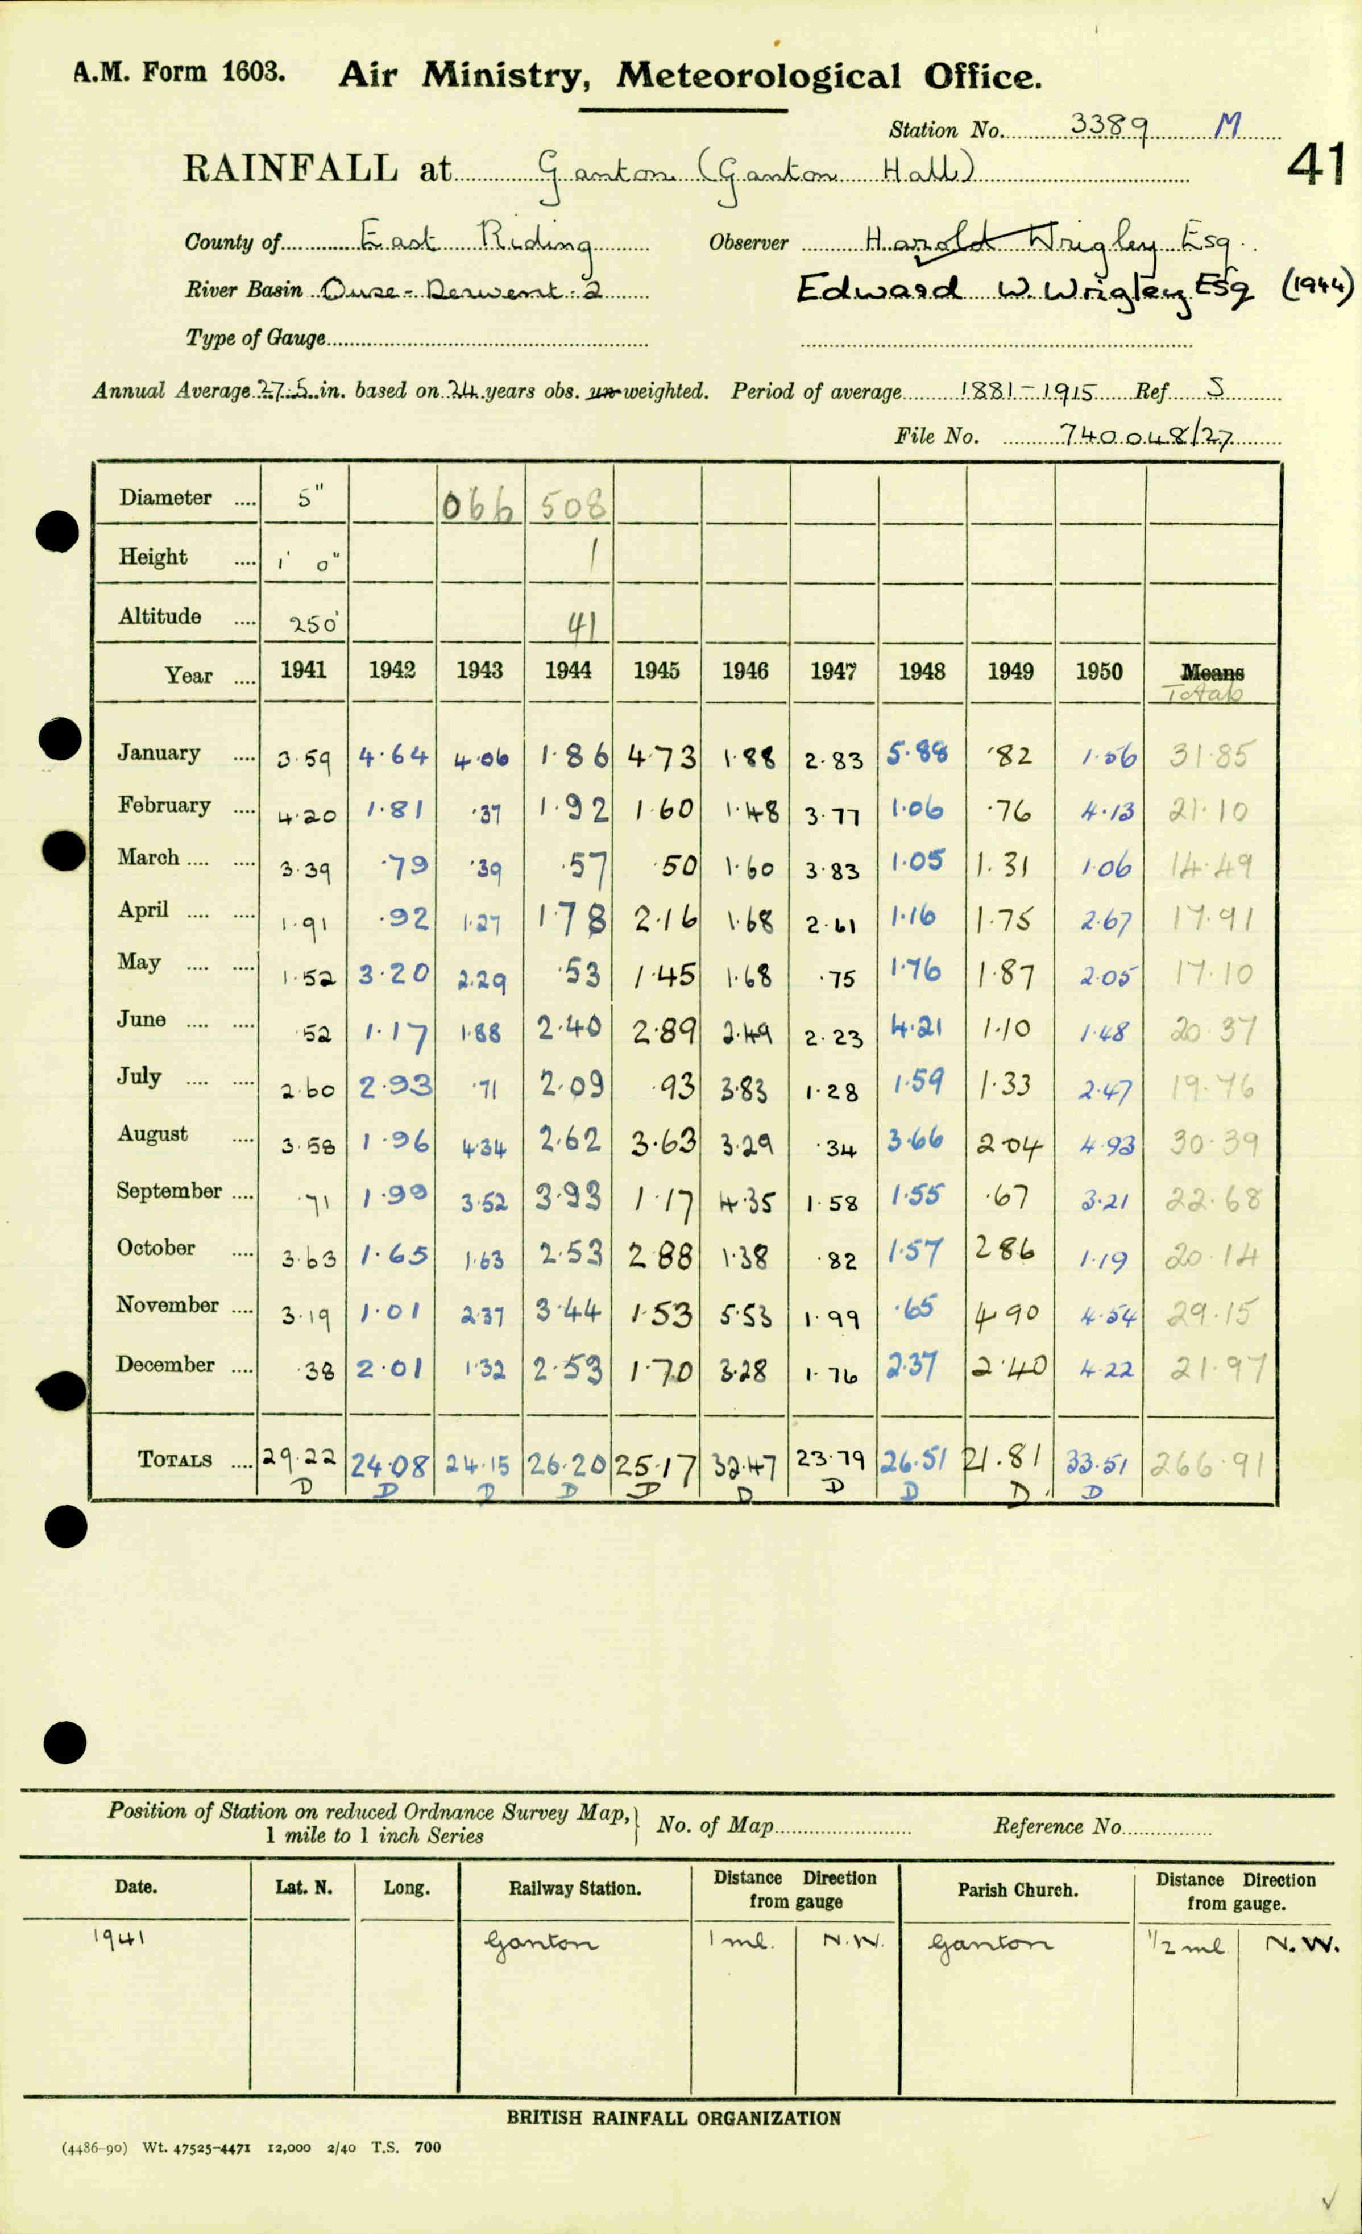 A.M. Form 1603. Air Ministry, Meteorological Office.
Station No. 3389 M
41
RAINFALL at Ganton (Ganton Hall)
County of East Riding Observer Harold Wrigley Esq.
River Basin Ouse-Derwent.2 Edward W. Wrigley Esq (1944)
Type of Gauge
Annual Average 27.5 in. based on 24 years obs. un-weighted. Period of average 1881-1915 Ref. S
File No. 740048/27
Diameter .... 5" 066 508
Height .... 1' 0" 1
Altitude .... 250' 41
Year .... 1941 1942 1943 1944 1945 1946 1947 1948 1949 1950 Means
Totals
January .... 3.59 4.64 4.06 1.86 4.73 1.88 2.83 5.88 .82 1.56 31.85
February .... 4.20 1.81 .37 1.92 1.60 1.48 3.77 1.06 .76 4.13 21.10
March .... .... 3.39 .79 .39 .57 .50 1.60 3.83 1.05 1.31 1.06 14.49
April .... .... 1.91 .92 1.27 1.78 2.16 1.68 2.61 1.16 1.75 2.67 17.91
May .... .... 1.52 3.20 2.29 .53 1.45 1.68 .75 1.76 1.87 2.05 17.10
June .... .... .52 1.17 1.88 2.40 2.89 2.49 2.23 4.21 1.10 1.48 20.37
July .... .... 2.60 2.93 .71 2.09 .93 3.83 1.28 1.59 1.33 2.47 19.76
August .... 3.58 1.96 4.34 2.62 3.63 3.29 .34 3.66 2.04 4.93 30.39
September .... .71 1.99 3.52 3.93 1.17 4.35 1.58 1.55 .67 3.21 22.68
October .... 3.63 1.65 1.63 2.53 2.88 1.38 .82 1.57 2.86 1.19 20.14
November .... 3.19 1.01 2.37 3.44 1.53 5.53 1.99 .65 4.90 4.54 29.15
December .... .38 2.01 1.32 2.53 1.70 3.28 1.76 2.37 2.40 4.22 21.97
TOTALS .... 29.22 24.08 24.15 26.20 25.17 32.47 23.79 26.51 21.81 33.51 266.91
D D D D D D D D D D
Position of Station on reduced Ordnance Survey Map, 1 mile to 1 inch Series } No. of Map Reference No.
Date. Lat. N. Long. Railway Station. Distance Direction from gauge Parish Church. Distance Direction from gauge.
1941 Ganton 1 ml. N.W. Ganton 1/2 ml N.W.
BRITISH RAINFALL ORGANIZATION
(4486-90) Wt. 47525-4471 12,000 2/40 T.S. 700